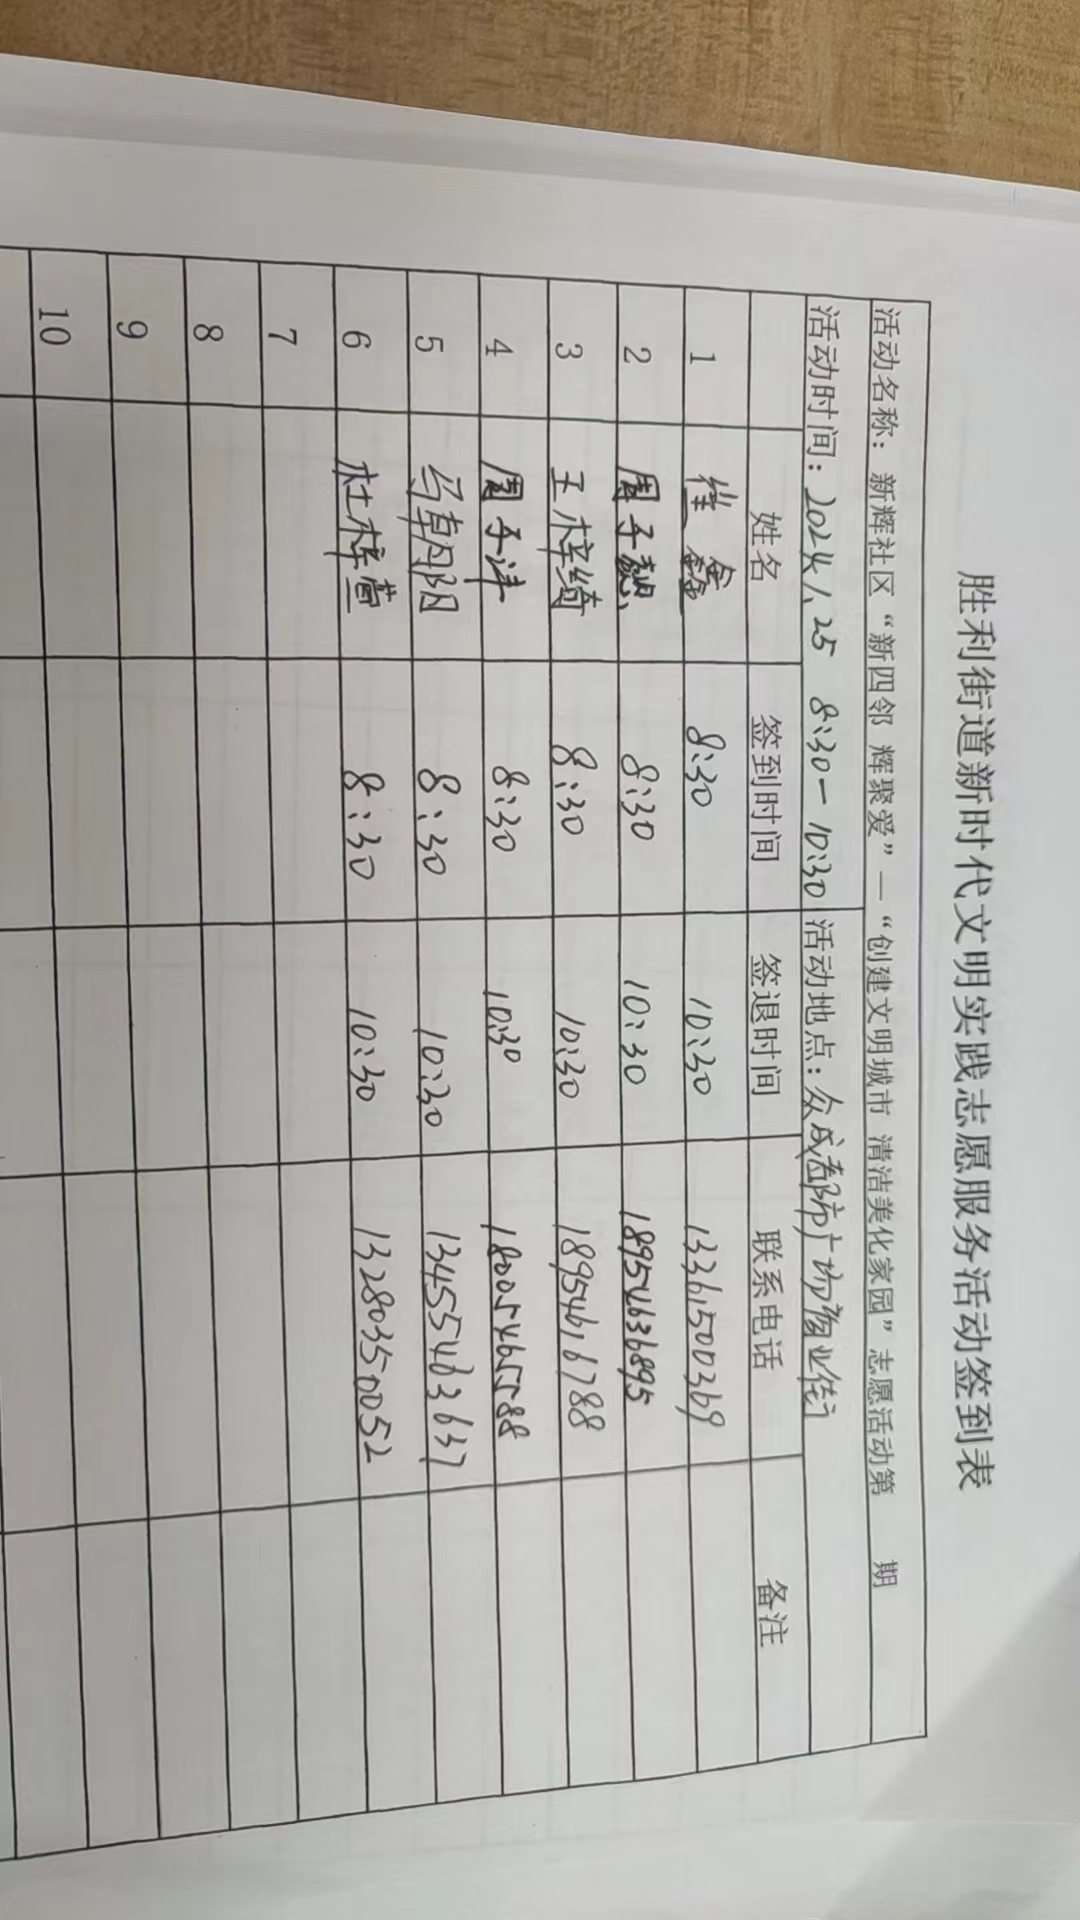 胜利街道新时代文明实践志愿服务活动签到表
活动名称：新辉社区“新四邻 辉聚爱”—“创建文明城市 清洁美化家园”志愿活动第 期
活动时间：2024.1.25 8:30—10:30 活动地点：众成都市广场商业街
姓名 签到时间 签退时间 联系电话 备注
1 崔鑫 8:30 10:30 13361500369
2 周子懿 8:30 10:30 18954636895
3 王梓绮 8:30 10:30 18954616788
4 周子津 8:30 10:30 18005465588
5 马朝阳 8:30 10:30 13455463637
6 杜梓萱 8:30 10:30 13280350052
7
8
9
10